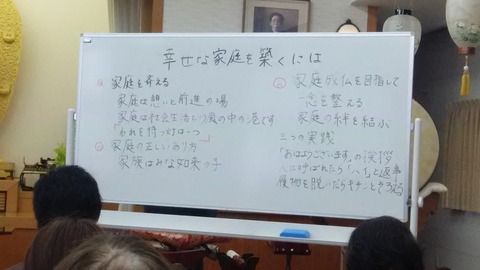 幸せな家庭を築くには
家庭を考える
家庭は憩いと前進の場
家庭は社会生活という風の中の港です
われを待つ灯は一つ
家庭の正しいあり方
家族はみな如来っ子
家庭が仏を目指して
心を整える
家庭の絆を結ぶ
三つの実践
「おはようございます」の挨拶
人に呼ばれたら「ハイ」と返事
履物を脱いだらキチンとそろえる